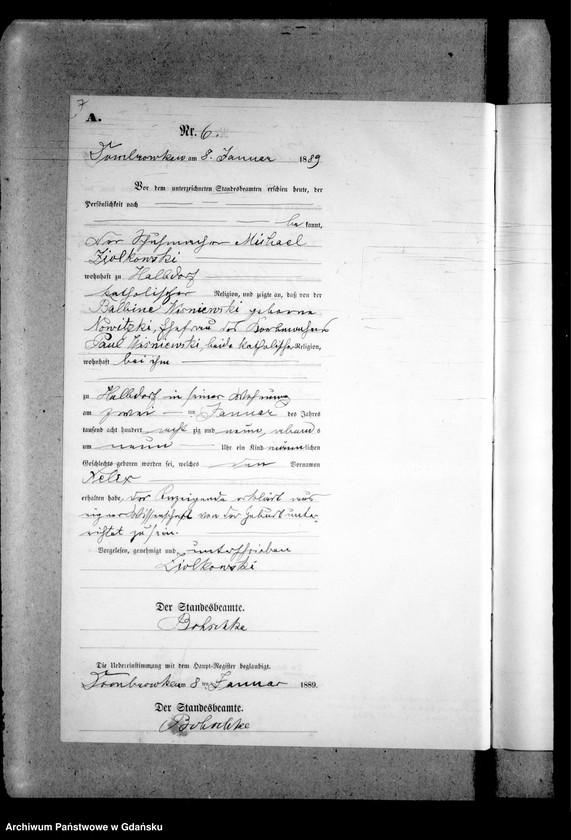 7
A.
Nr. 6.
am 8. Januar 1889
Vor dem unterzeichneten Standesbeamten erschien heute, der
Persönlichkeit nach
be kannt,
der Schuhmacher Michael
Ziolkowski
wohnhaft zu Halbdorf
katholischer Religion, und zeigte an, daß von der
Balbine Wisniewski geborene
Nowitzki, Ehefrau des Korbmachers
Paul Wisniewski, beide katholischer Religion,
wohnhaft bei ihm
zu Halbdorf in seiner Wohnung
am zwei ten Januar des Jahres
tausend acht hundert acht zig und neun, abends
um neun Uhr ein Kind männlichen
Geschlechts geboren worden sei, welches den Vornamen
Felix
erhalten habe. Der Anzeigende erklärt aus
eigner Wissenschaft von der Geburt unter-
richtet zu sein.
Vorgelesen, genehmigt und unterschrieben
Ziolkowski
Der Standesbeamte.
Die Uebereinstimmung mit dem Haupt-Register beglaubigt.
am 8 ten Januar 1889.
Der Standesbeamte.
Archiwum Państwowe w Gdańsku